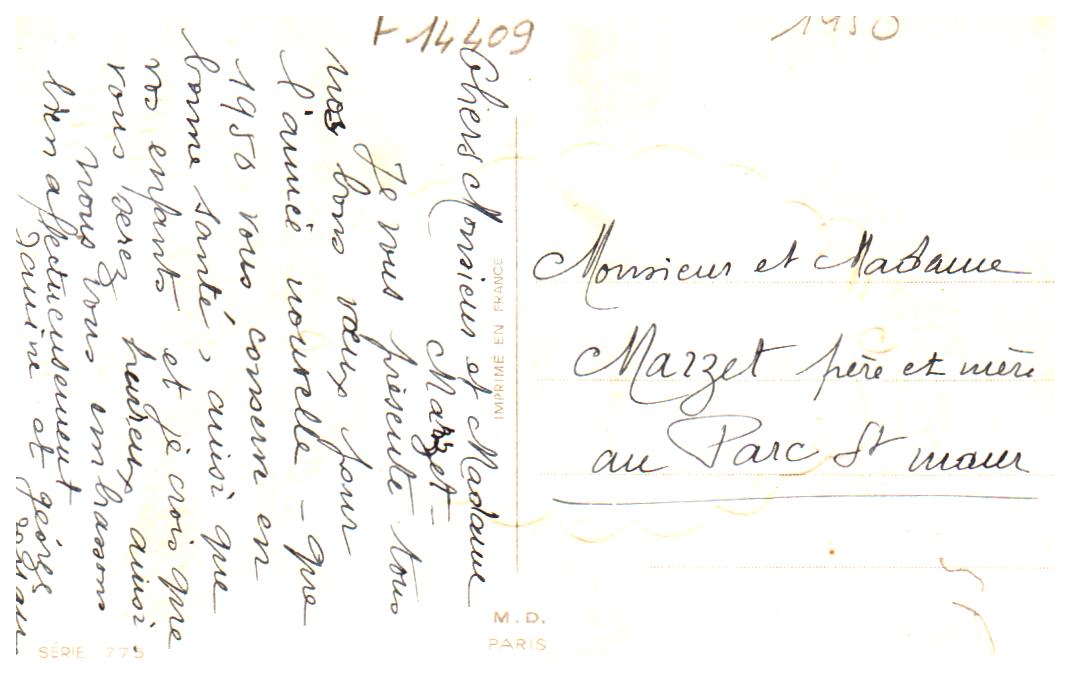 F 14409
1950
Chers Monsieur et Madame
Marzet -
Je vous présente tous
nos bons vœux pour
l'année nouvelle - que
1950 vous conserve en
bonne santé, ainsi que
vos enfants et je crois que
vous serez heureux ainsi.
Nous vous embrassons
bien affectueusement
Janine et géorge
Monsieur et Madame
Marzet père et mère
au Parc St maur
IMPRIMÉ EN FRANCE
M.D.
PARIS
SÉRIE 775